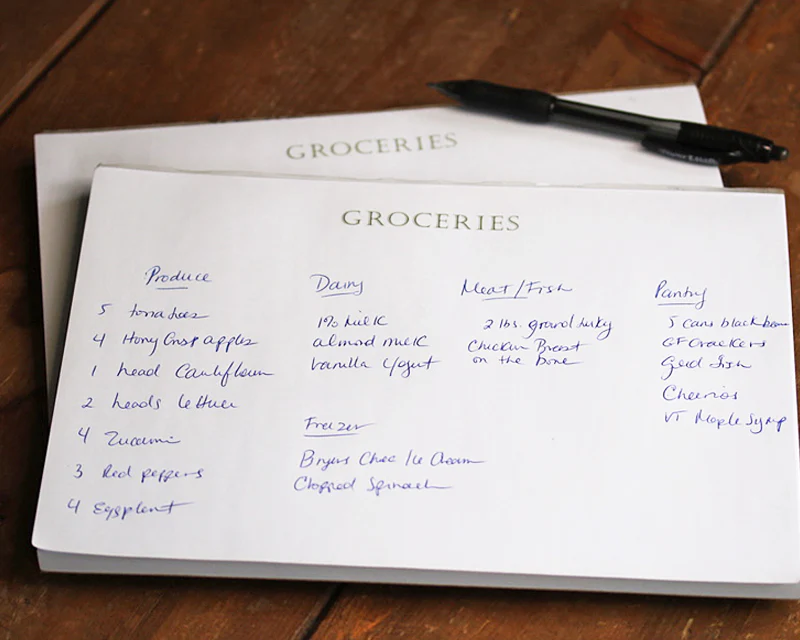 GROCERIES
GROCERIES
Produce
5 tomatoes
4 Hony Crisp apples
1 head Cauliflower
2 heads lettuce
4 Zuccini
3 Red peppers
4 Eggplant
Dairy
1% milk
almond milk
Vanilla Yogurt
Freezer
Bryers Choc Ice Cream
Chopped Spinach
Meat/Fish
2 lbs. ground turkey
Chicken Breast
on the bone
Pantry
5 cans black beans
GF Crackers
Gold fish
Cheerios
VT Maple Syrup